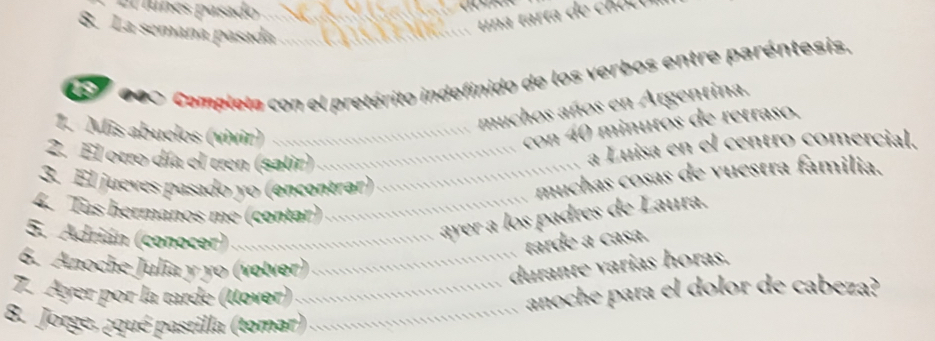 lunes pasado
8. La semana pasada ............ una tarta de
13 Completa con el pretérito indefinido de los verbos entre paréntesis.
1. Mis abuelos (vivir) ............ muchos años en Argentina.
2. El otro día el tren (salir) ............ con 40 minutos de retraso.
3. El jueves pasado yo (encontrar) ............ a Luisa en el centro comercial.
4. Tus hermanos me (contar) ............ muchas cosas de vuestra familia.
5. Adrián (conocer) ............ ayer a los padres de Laura.
6. Anoche Julia y yo (volver) ............ tarde a casa.
7. Ayer por la tarde (llover) ............ durante varias horas.
8. Jorge, ¿qué pastilla (tomar) ............ anoche para el dolor de cabeza?